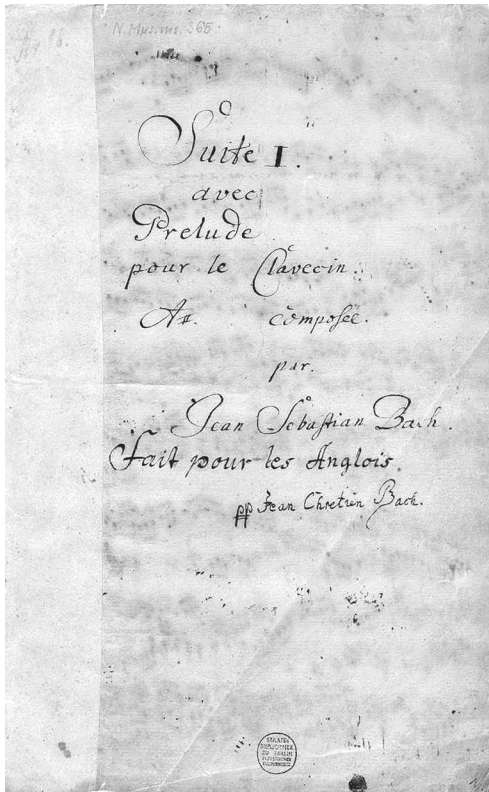 N. Mus. ms. 365
Suite I.
avec
Prelude
pour le Clavecin.
A#. composée.
par.
Jean Sebastian Bach.
Fait pour les Anglois.
pp Jean Chretien Bach.
STAATS-
BIBLIOTHEK
ZU BERLIN